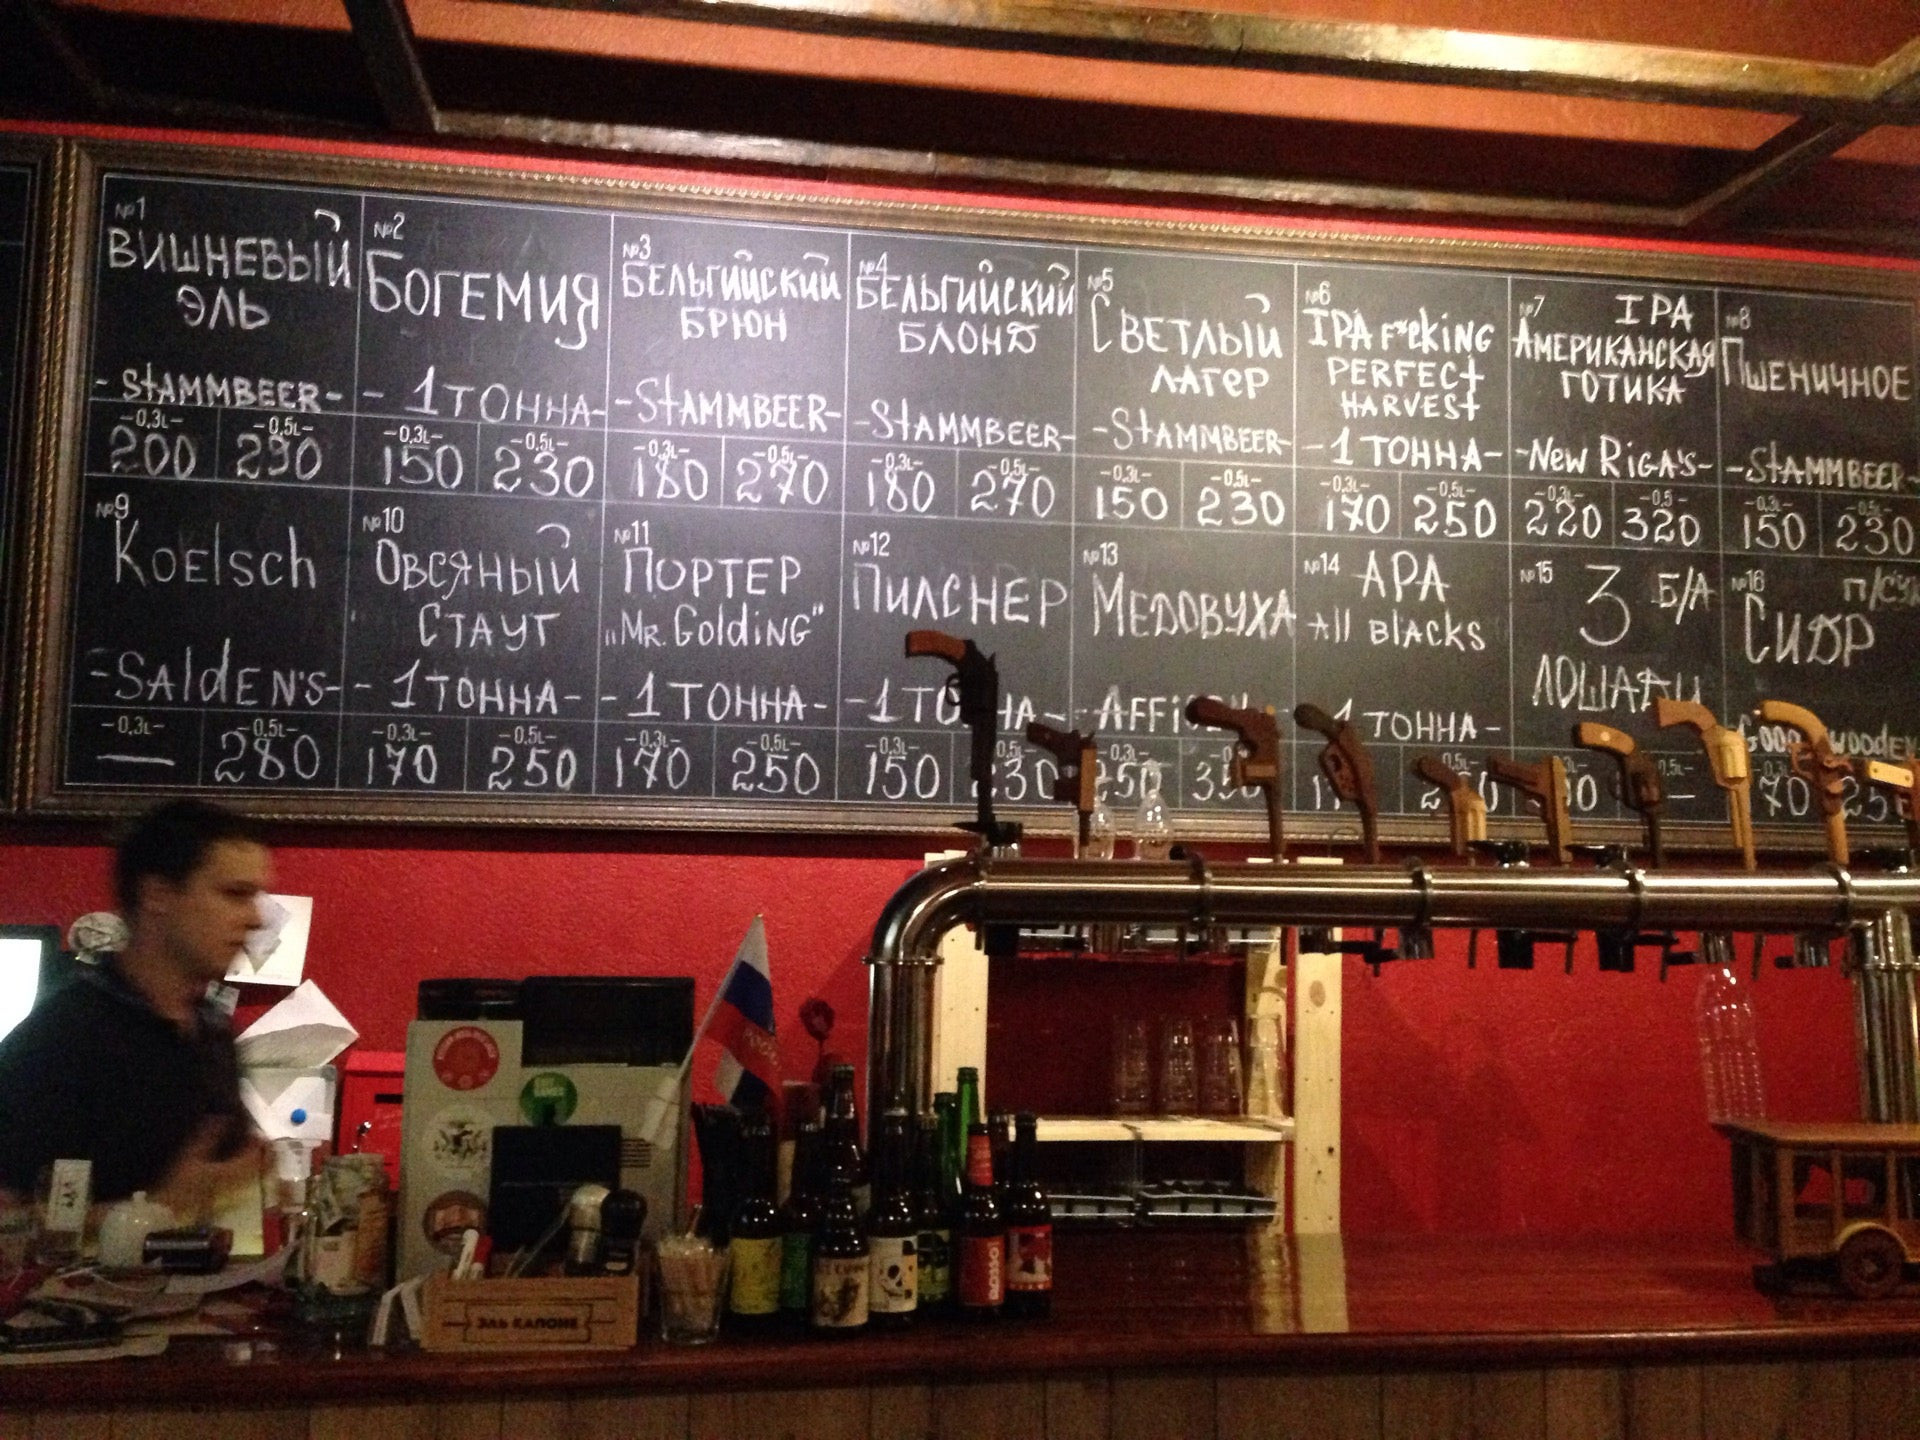 №1
ВИШНЕВЫЙ
ЭЛЬ
- StAMMBEER -
-0,3L- -0,5L-
200 290
№2
БОГЕМИЯ
- 1 ТОННА -
-0,3L- -0,5L-
150 230
№3
БЕЛЬГИЙСКИЙ
БРЮН
-StAMMBEER-
-0,3L- -0,5L-
180 270
№4
БЕЛЬГИЙСКИЙ
БЛОНД
-StAMMBEER-
-0,3L- -0,5L-
180 270
№5
СВЕТЛЫЙ
ЛАГЕР
-StAMMBEER-
-0,3L- -0,5L-
150 230
№6
IPA F*cking
PERFEct
HARVESt
-1 ТОННА-
-0,3L- -0,5L-
170 250
№7
IPA
АМЕРИКАНСКАЯ
ГОТИКА
-New RIGA'S-
-0,3L- -0,5-
220 320
№8
ПШЕНИЧНОЕ
-StAMMBEER-
-0,3L- -0,5L-
150 230
№9
Koelsch
-SAldEN'S-
-0,3L- -0,5L-
— 280
№10
ОВСЯНЫЙ
СТАУТ
- 1 ТОННА -
-0,3L- -0,5L-
170 250
№11
ПОРТЕР
„MR. GoldiNG"
- 1 ТОННА -
-0,3L- -0,5L-
170 250
№12
ПИЛСНЕР
-0,3L-
150
№13
МЕДОВУХА
№14
APA
All BlAcks
1 ТОННА -
-0,5L-
№15
3 Б/А
ЛОШАДИ
№16
СИДР
WOODEN
70
ЭЛЬ КАПОНЕ
ROSSO